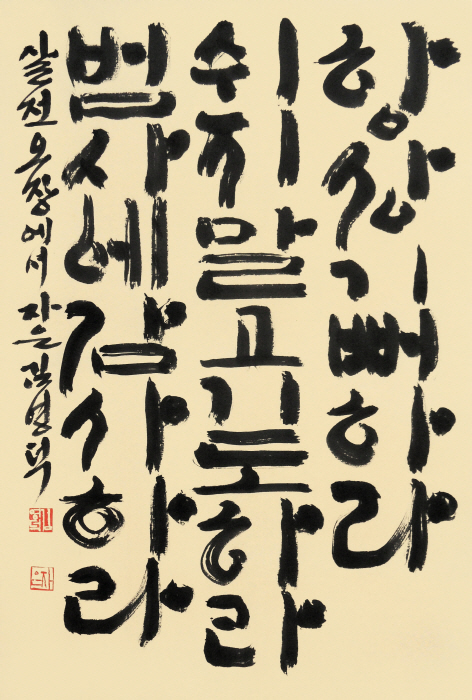 항상기뻐하라
쉬지말고기도하라
범사에감사하라
살전오장에서 자은